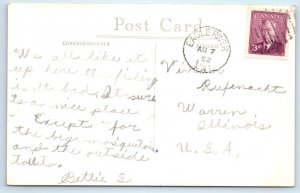 Post Card
CORRESPONDENCE
We all like it
up here the fishing
isn't bad, it sure
is a nice place
Except for
the big mosquitoes
and the outside
toilet.
Bettie S
EAGLE RIVER
7
52
ONT.
CANADA
3
Vivian
Rufenacht
Warren
Illinois
U.S.A.